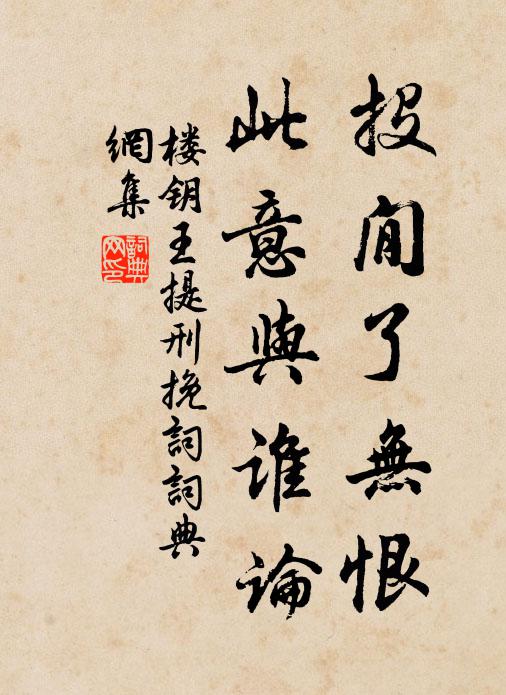 投閒了無恨
此意與誰論
楼钥王提刑挽詞詞典
網集
詞典网印